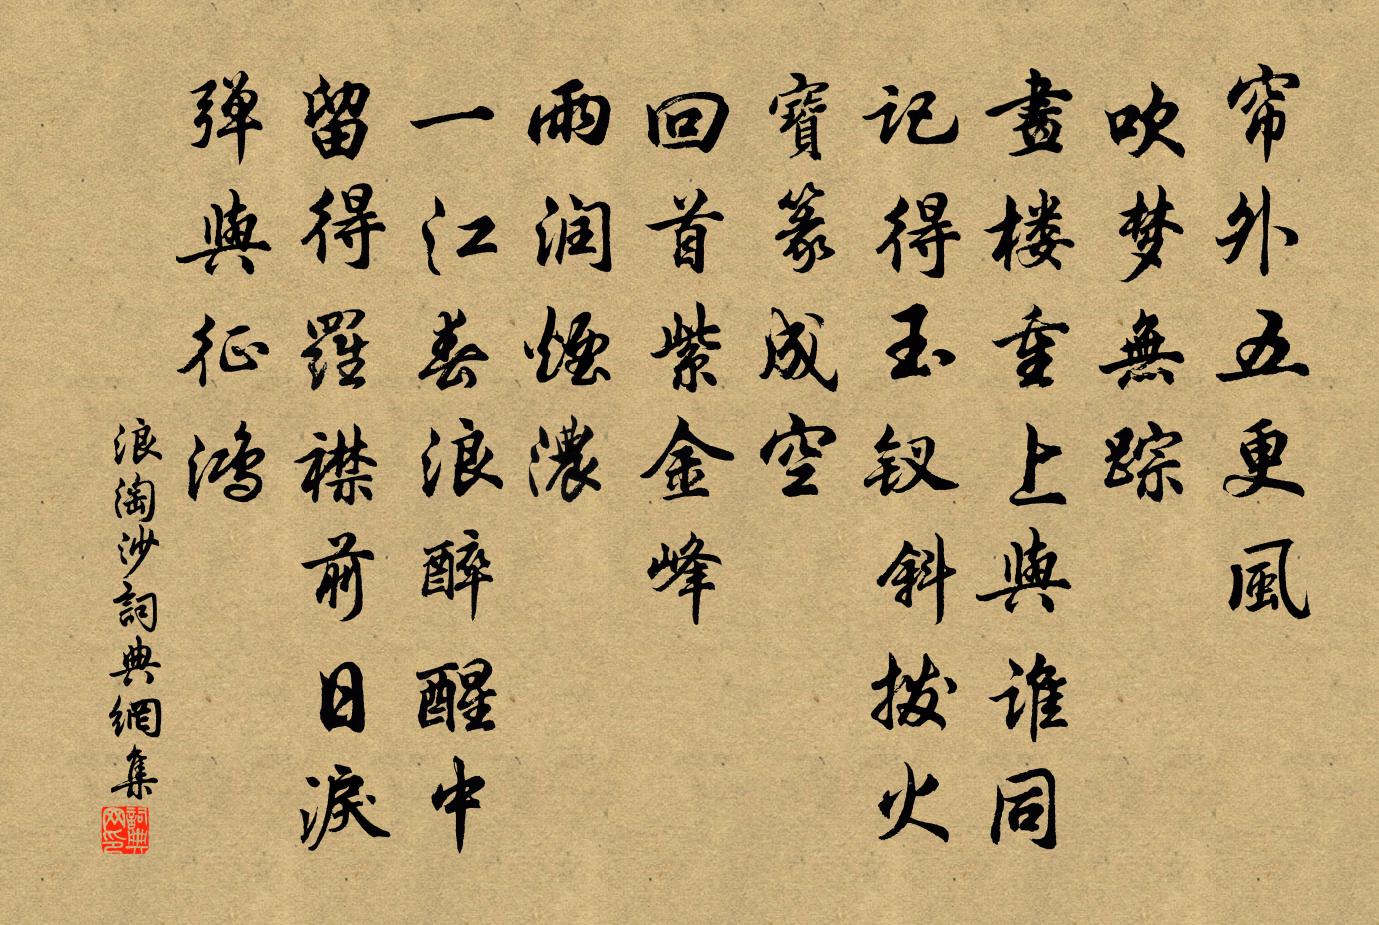 帘外五更風
吹梦無踪
畫楼重上與谁同
记得玉钗斜拨火
寶篆成空
回首紫金峰
雨润煙濃
一江春浪醉醒中
留得羅襟前日淚
弹與征鸿
浪淘沙詞典網集
詞典网印